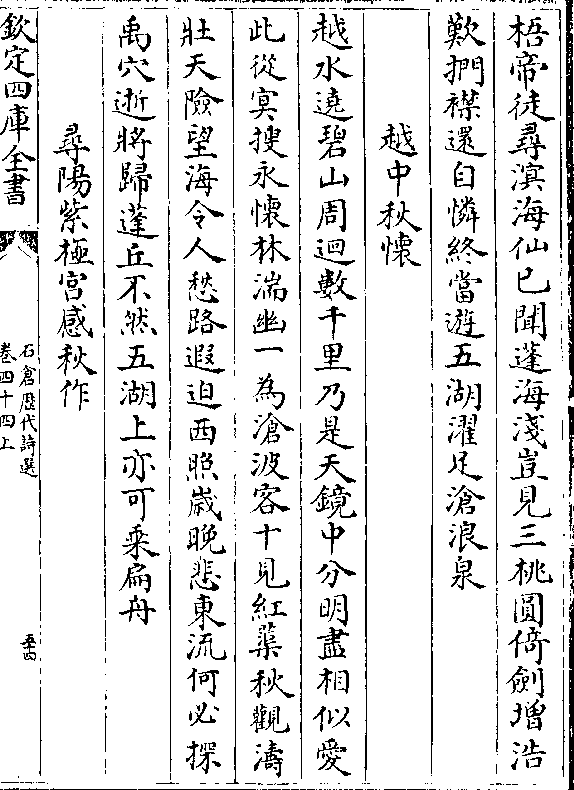 梧帝徒尋溟海仙已聞蓬海淺豈見三桃圓倚劍增浩
歎捫襟還自憐終當遊五湖濯足滄浪泉
越中秋懷
越水遶碧山周迴數千里乃是天鏡中分明盡相似愛
此從冥搜永懷林湍幽一為滄波客十見紅蕖秋觀濤
壯天險望海令人愁路遐迫西照嵗晚悲東流何必探
禹穴逝將歸蓬丘不然五湖上亦可乗扁舟
尋陽紫極宫感秋作
欽定四庫全書
石倉歴代詩選
卷四十四上